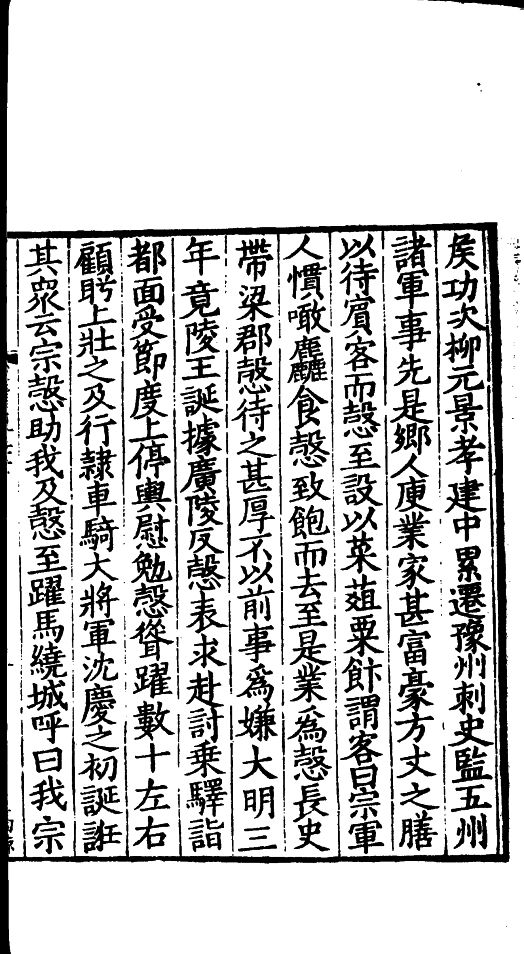 侯功次柳元景孝建中累遷豫州刺史監五州
諸軍事先是鄉人庾業家甚富豪方丈之膳
以待賓客而慤至設以菜葅粟飰謂客曰宗軍
人慣噉麤食慤致飽而去至是業爲慤長史
帶梁郡慤待之甚厚不以前事爲嫌大明三
年竟陵王誕據廣陵反慤表求赴討乘驛詣
都面受節度上停輿慰勉慤聳躍數十左右
顧眄上壯之及行隷車騎大將軍沈慶之初誕誑
其衆云宗慤助我及慤至躍馬繞城呼曰我宗